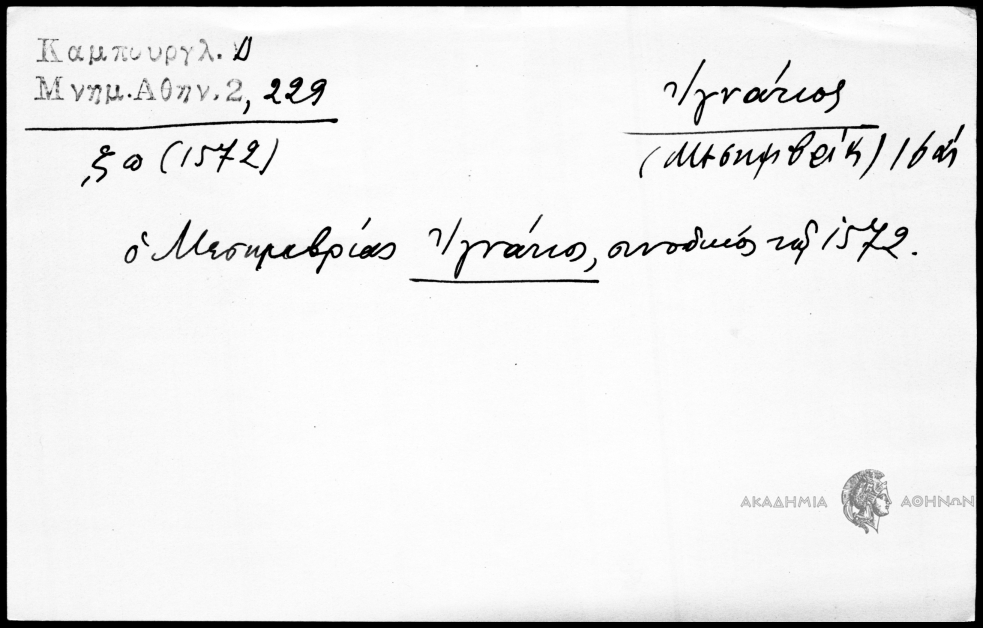 Καμπουργλ. Δ
Μνημ. Αθην. 2, 229
(1572)
Ἰγνάτιος
(Μεσημβρίας) 16
ὁ Μεσημβρίας Ἰγνάτιος, συνοδικός τοῦ 1572.
ΑΚΑΔΗΜΙΑ ΑΘΗΝΩΝ